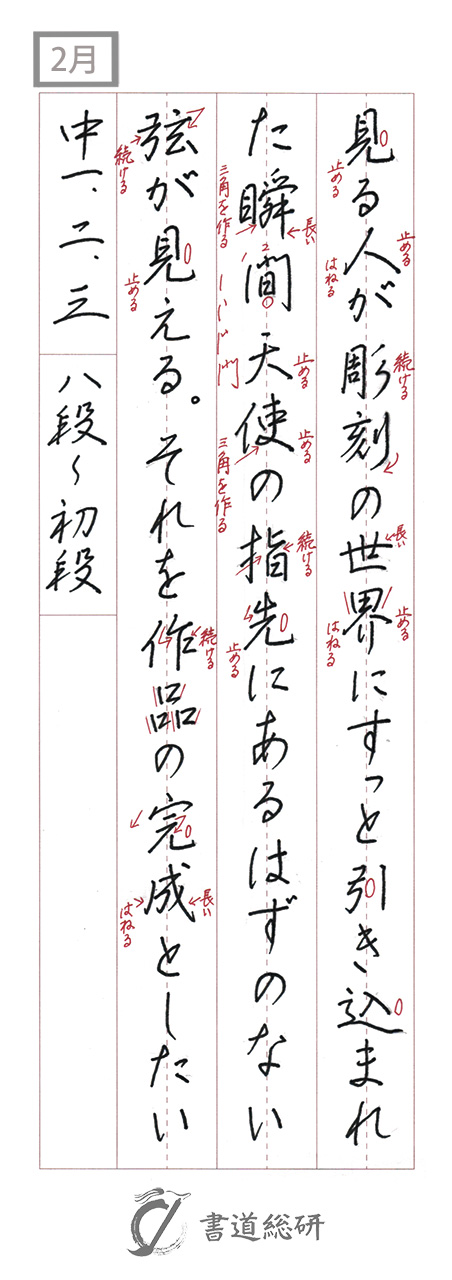 2月
見る人が彫刻の世界にすっと引き込まれ
止める
止める
はねる
続ける
長い
止める
はねる
た瞬間天使の指先にあるはずのない
三角を作る
長い
止める
止める
三角を作る
続ける
止める
弦が見える。それを作品の完成としたい
続ける
止める
続ける
長い
はねる
中一、二、三
八段〜初段
書道総研